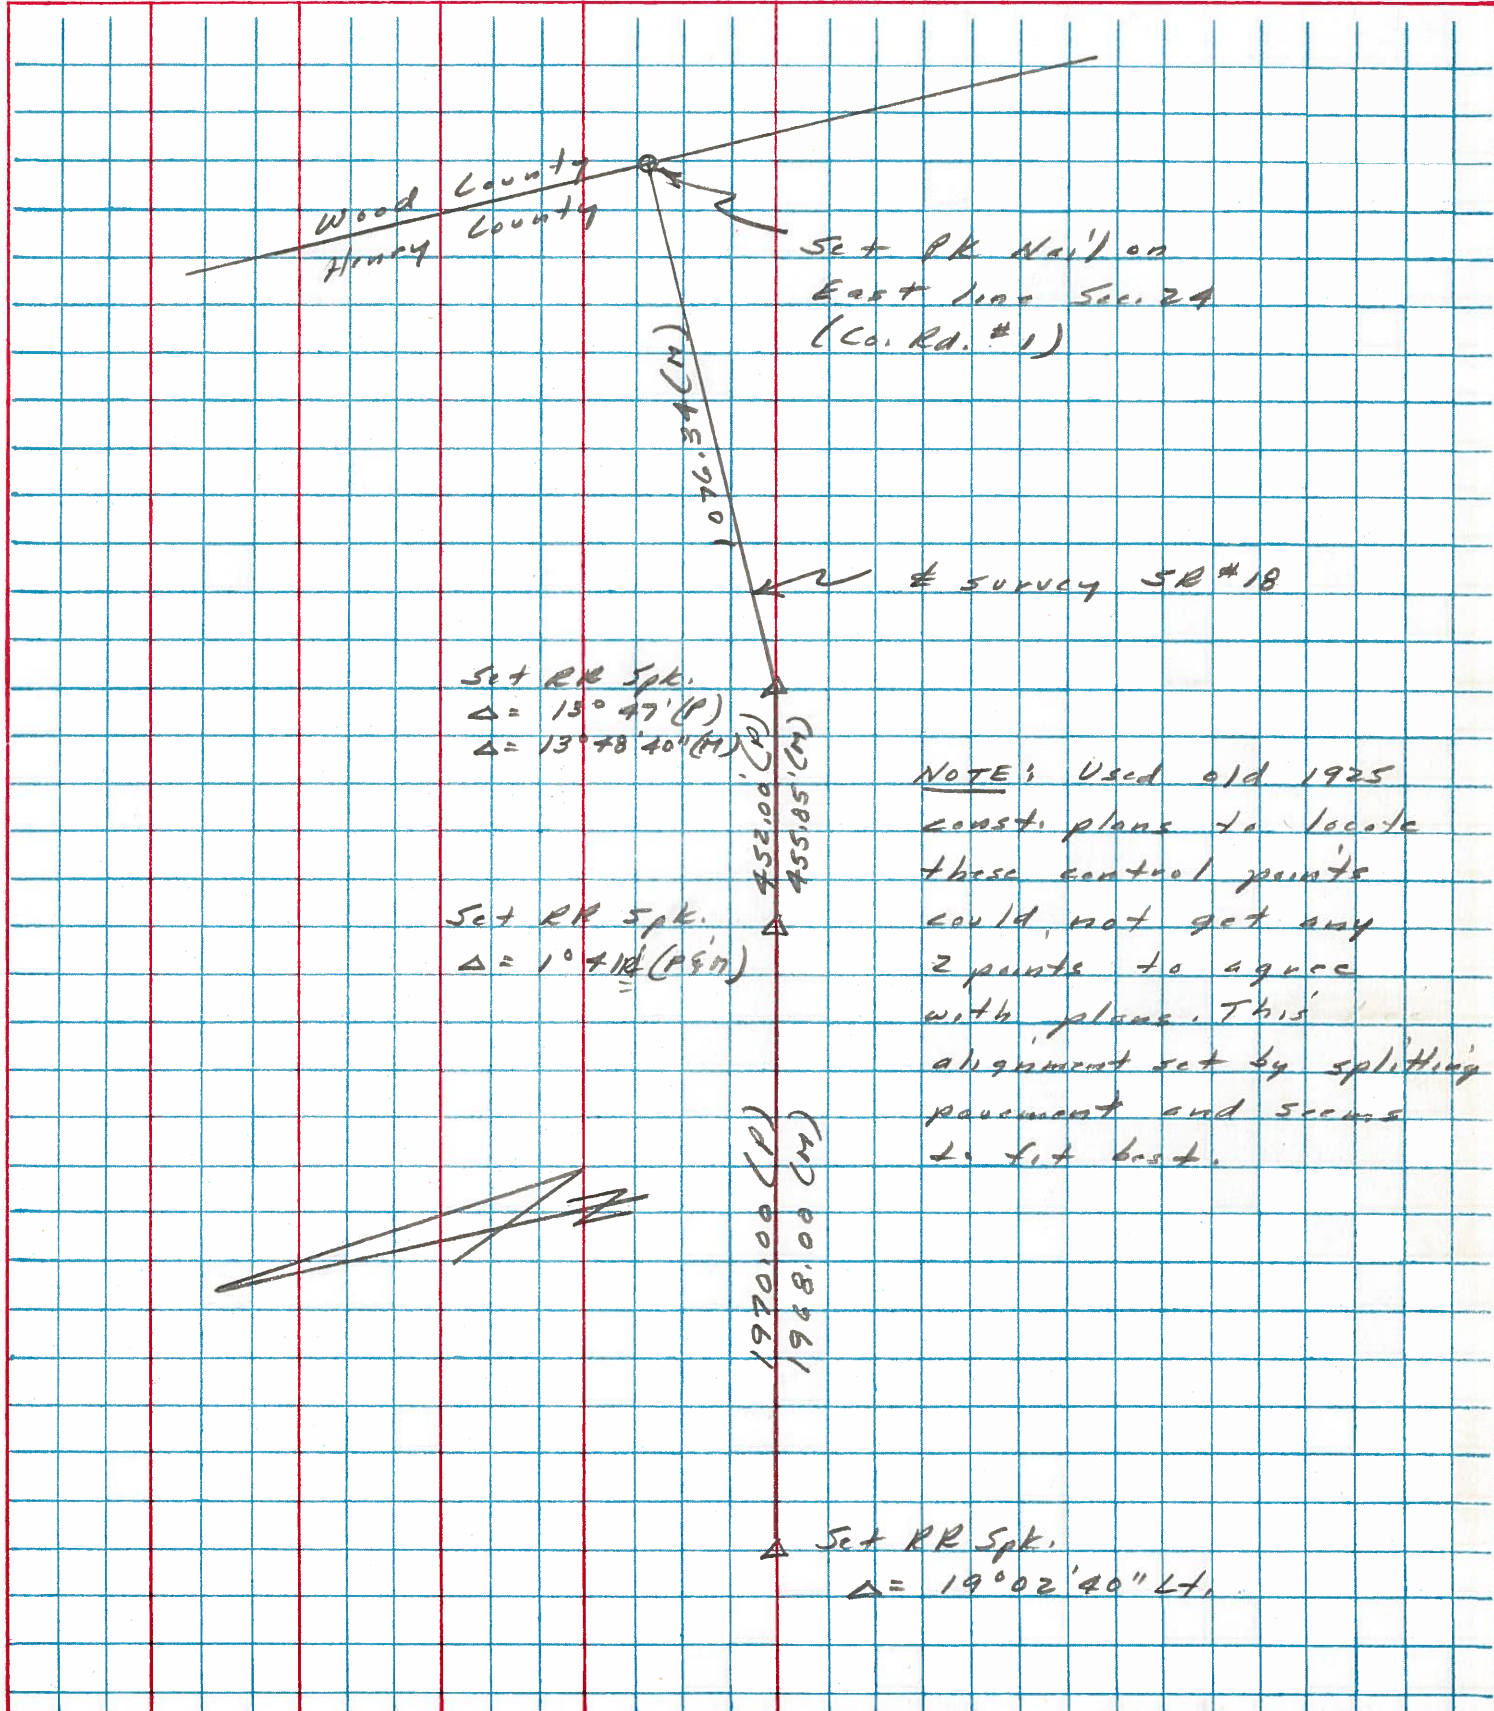 Wood County
Henry County
Set PK Nail on
East line Sec. 24
(Co. Rd. #1)
1076.34 (M)
℄ survey SR #18
Set RR Spk.
Δ = 13° 47' (P)
Δ = 13° 48' 40" (M)
452.00' (P)
455.85' (M)
NOTE: Used old 1925
const. plans to locate
these control points
could not get any
2 points to agree
with plans. This
alignment set by splitting
pavement and seems
to fit best.
Set RR Spk.
Δ = 1° (P&M)
1970.00 (P)
1968.00 (M)
N
Set RR Spk.
Δ = 19° 02' 40" Lt.